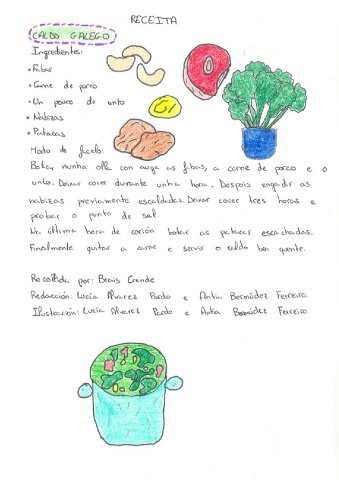 RECEITA
CALDO GALEGO
Ingredientes:
• Fabas
• Carne de porco
• Un pouco de unto
• Nabizas
• Patacas
Modo de facelo:
Botar nunha olla con auga as fabas, a carne de porco e o
unto. Deixar cocer durante unha hora. Despois engadir as
nabizas previamente escaldadas. Deixar cocer tres horas e
probar o punto de sal.
Na última hora de cocción botar as patacas escachadas.
Finalmente quitar a carne e servir o caldo ben quente.
Recollida por: Brais Grande
Redacción: Lucía Álvarez Pardo e Antía Bermúdez Ferreiro.
Ilustración: Lucía Álvarez Pardo e Antía Bermúdez Ferreiro.